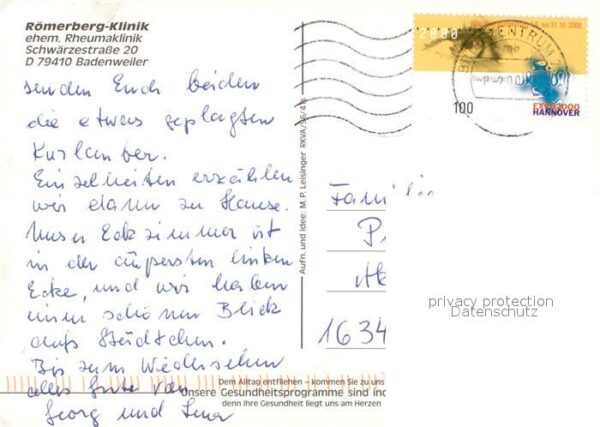 Römerberg-Klinik
ehem. Rheumaklinik
Schwärzestraße 20
D 79410 Badenweiler
senden Euch beiden
die etwas geplagten
Kurlauber.
Einzelheiten erzählen
wir dann zu Hause.
Unser Eckzimmer ist
in der äußersten linken
Ecke, und wir haben
einen schönen Blick
aufs Städtchen.
Bis zum Wiedersehen
alles Gute von
Georg und
Aufn. und Idee: M.P. Leisinger RKVA/96/4/3
2000
ZENTRUM
100
EXPO2000
HANNOVER
Familie
P
1634
privacy protection
Datenschutz
Dem Alltag entfliehen – kommen Sie zu uns
Unsere Gesundheitsprogramme sind ind
denn Ihre Gesundheit liegt uns am Herzen